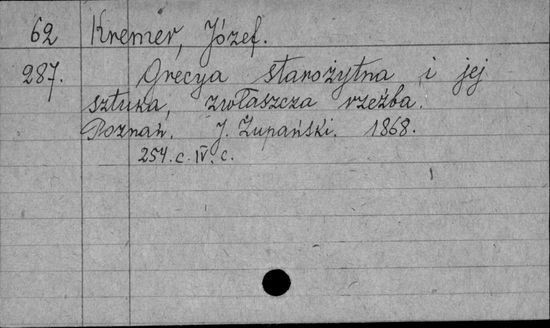 62 Kremer, Józef.
287. Grecya starożytna i jej
sztuka, zwłaszcza rzeźba.
Poznań. J. Żupański. 1868.
254. c. IV. c.